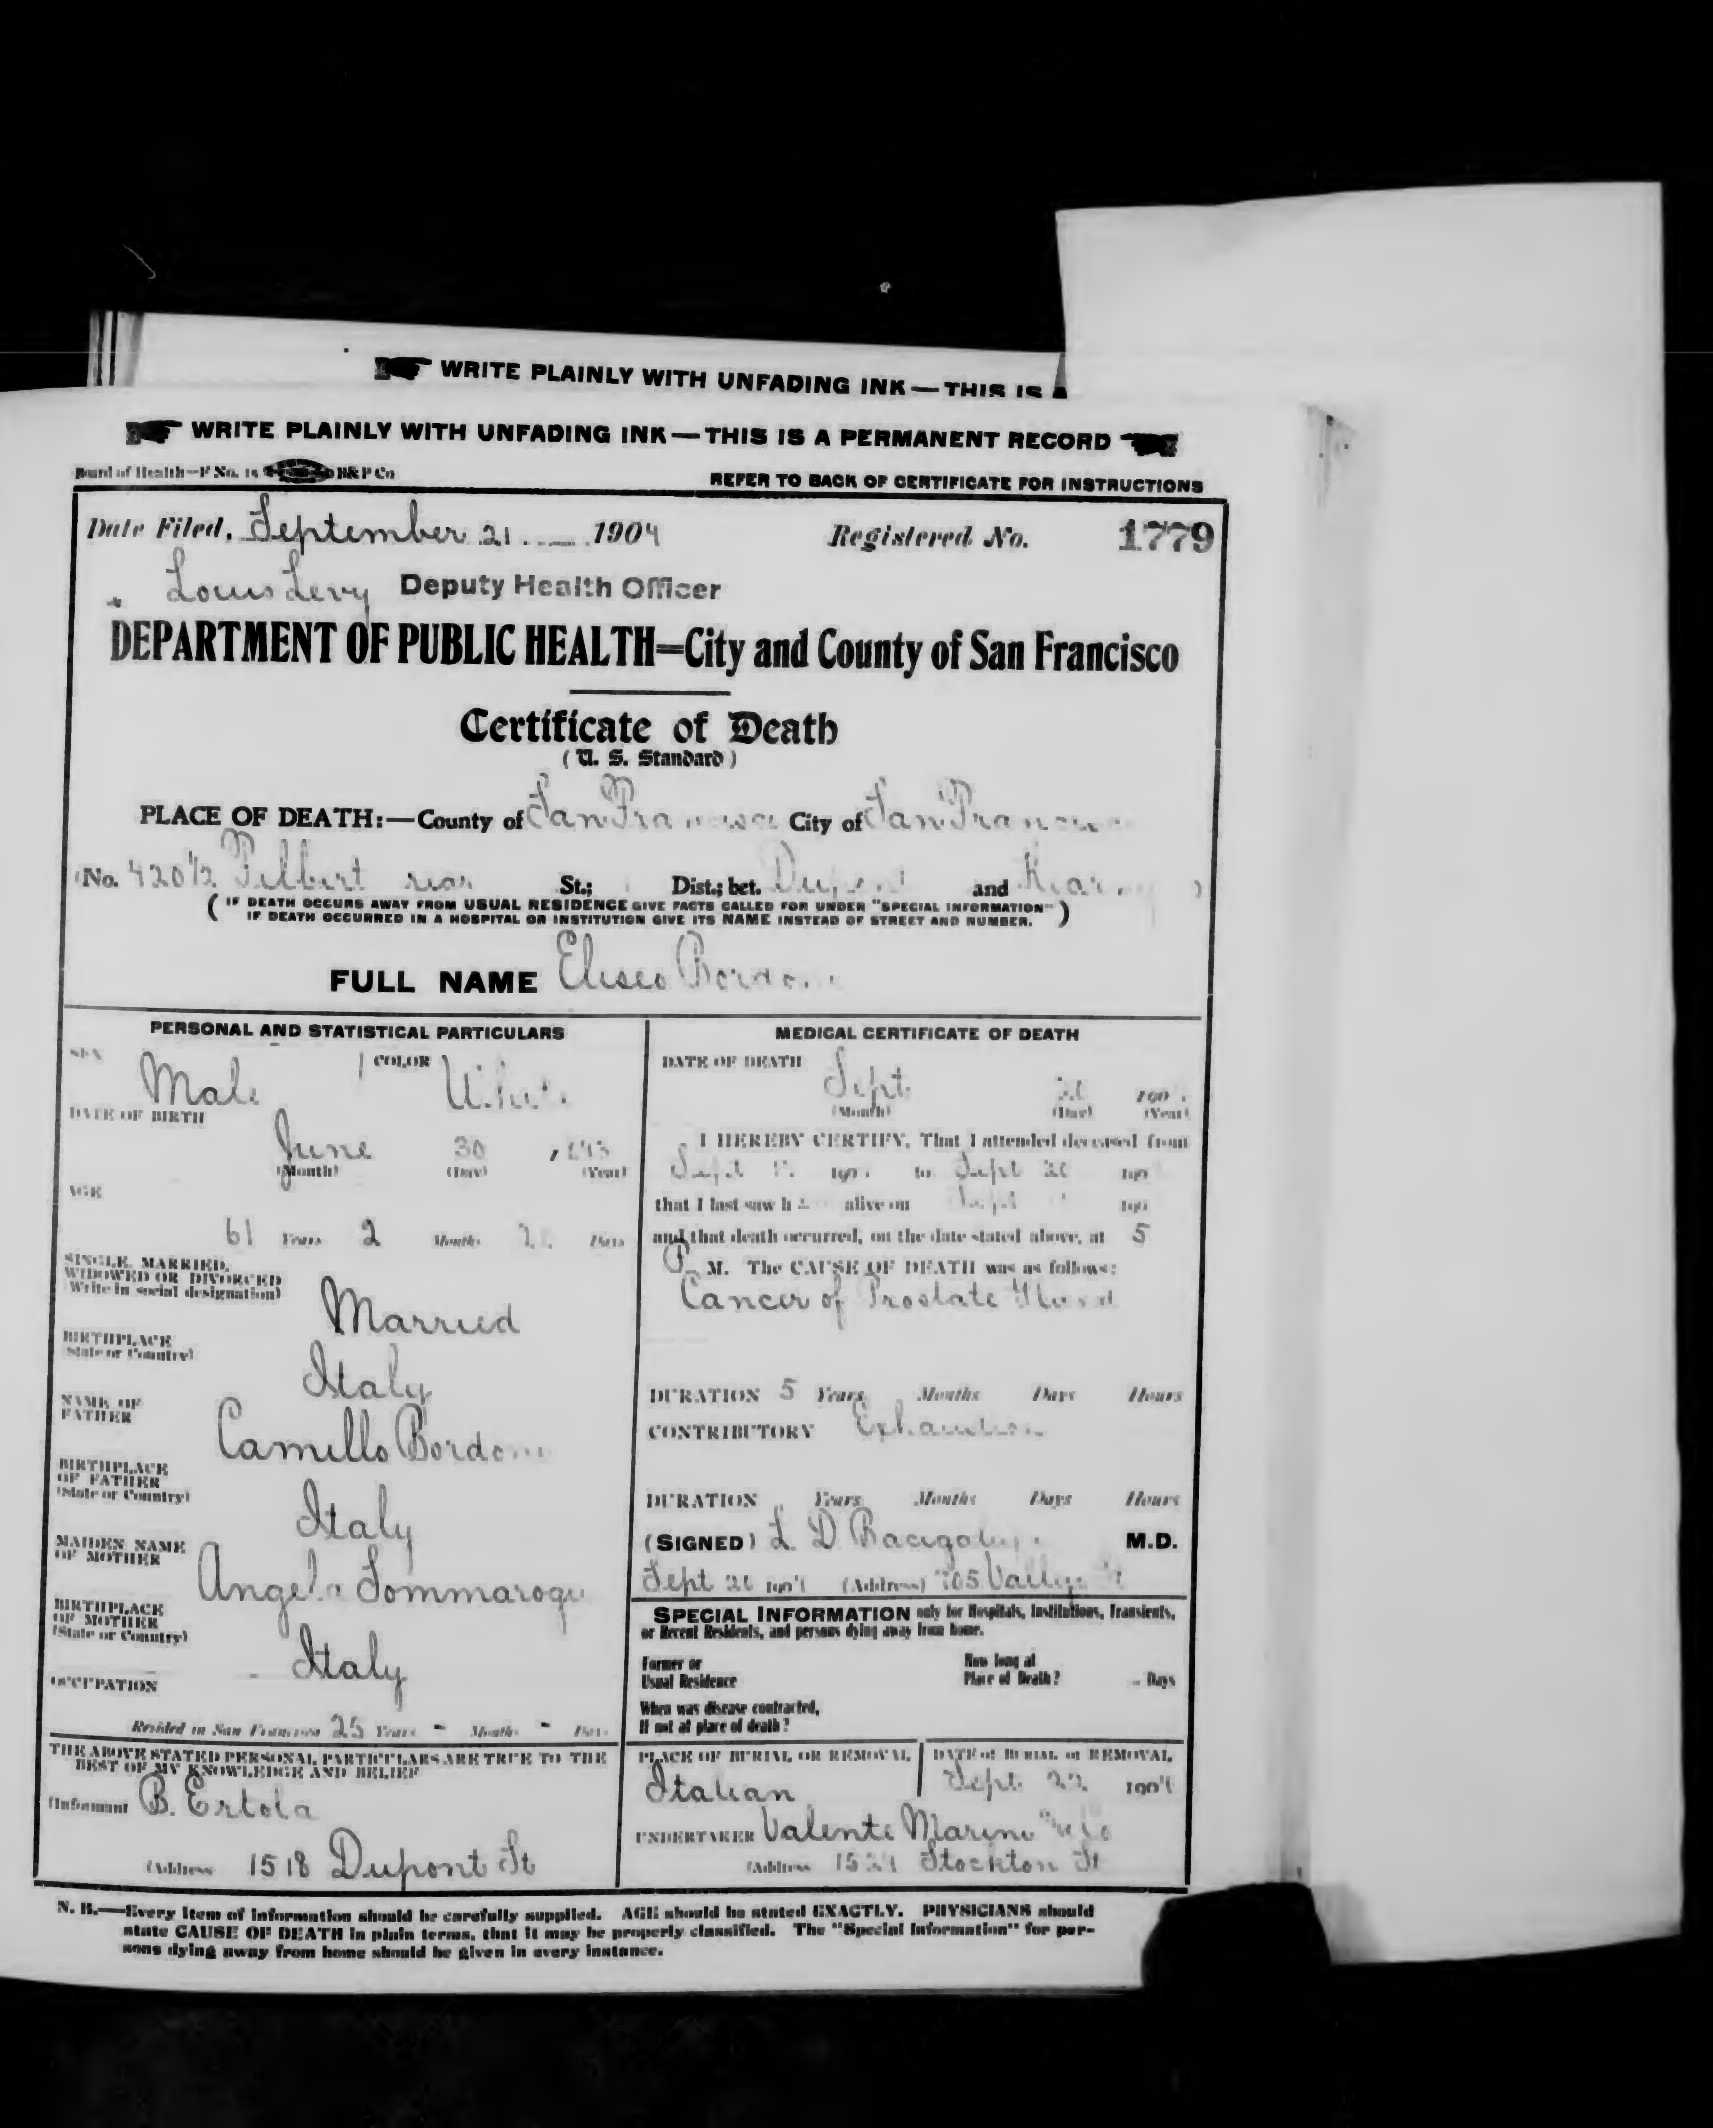 WRITE PLAINLY WITH UNFADING INK — THIS IS A
WRITE PLAINLY WITH UNFADING INK — THIS IS A PERMANENT RECORD
Board of Health—F No. 15 H&P Co
REFER TO BACK OF CERTIFICATE FOR INSTRUCTIONS
Date Filed, September 21 1904 Registered No. 1779
Louis Levy Deputy Health Officer
DEPARTMENT OF PUBLIC HEALTH=City and County of San Francisco
Certificate of Death
(U. S. Standard)
PLACE OF DEATH:—County of San Francisco City of San Francisco
(No. 420 1/2 Filbert rear St.; Dist.; bet. Dupont and Kearny)
(IF DEATH OCCURS AWAY FROM USUAL RESIDENCE GIVE FACTS CALLED FOR UNDER "SPECIAL INFORMATION"
IF DEATH OCCURRED IN A HOSPITAL OR INSTITUTION GIVE ITS NAME INSTEAD OF STREET AND NUMBER.)
FULL NAME Eliseo Bordoni
PERSONAL AND STATISTICAL PARTICULARS
SEX Male COLOR White
DATE OF BIRTH
June 30
(Month) (Day) (Year)
AGE
61 Years 2 Months Days
SINGLE, MARRIED,
WIDOWED OR DIVORCED
(Write in social designation)
Married
BIRTHPLACE
(State or Country)
Italy
NAME OF
FATHER
Camillo Bordoni
BIRTHPLACE
OF FATHER
(State or Country)
Italy
MAIDEN NAME
OF MOTHER
Angela
BIRTHPLACE
OF MOTHER
(State or Country)
Italy
OCCUPATION
Resided in San Francisco 25 Years - Months - Days
THE ABOVE STATED PERSONAL PARTICULARS ARE TRUE TO THE
BEST OF MY KNOWLEDGE AND BELIEF
(Informant B. Ertola
(Address 1518 Dupont St
MEDICAL CERTIFICATE OF DEATH
DATE OF DEATH
Sept 20 190
(Month) (Day) (Year)
I HEREBY CERTIFY, That I attended deceased from
Sept 190 to Sept 20 190
that I last saw h alive on Sept 190
and that death occurred, on the date stated above, at 5
P M. The CAUSE OF DEATH was as follows:
Cancer of Prostate Gland
DURATION 5 Years Months Days Hours
CONTRIBUTORY Exhaustion
DURATION Years Months Days Hours
(SIGNED) L. D. Bacigalupi M.D.
Sept 20 1904 (Address) 705 Vallejo St
SPECIAL INFORMATION only for Hospitals, Institutions, Transients,
or Recent Residents, and persons dying away from home.
Former or
Usual Residence
How long at
Place of Death? Days
When was disease contracted,
If not at place of death?
PLACE OF BURIAL OR REMOVAL
Italian
DATE of BURIAL or REMOVAL
Sept 22 1904
UNDERTAKER Valente Marini & Co
(Address 1524 Stockton St
N. B.—Every item of information should be carefully supplied. AGE should be stated EXACTLY. PHYSICIANS should
state CAUSE OF DEATH in plain terms, that it may be properly classified. The "Special Information" for per-
sons dying away from home should be given in every instance.